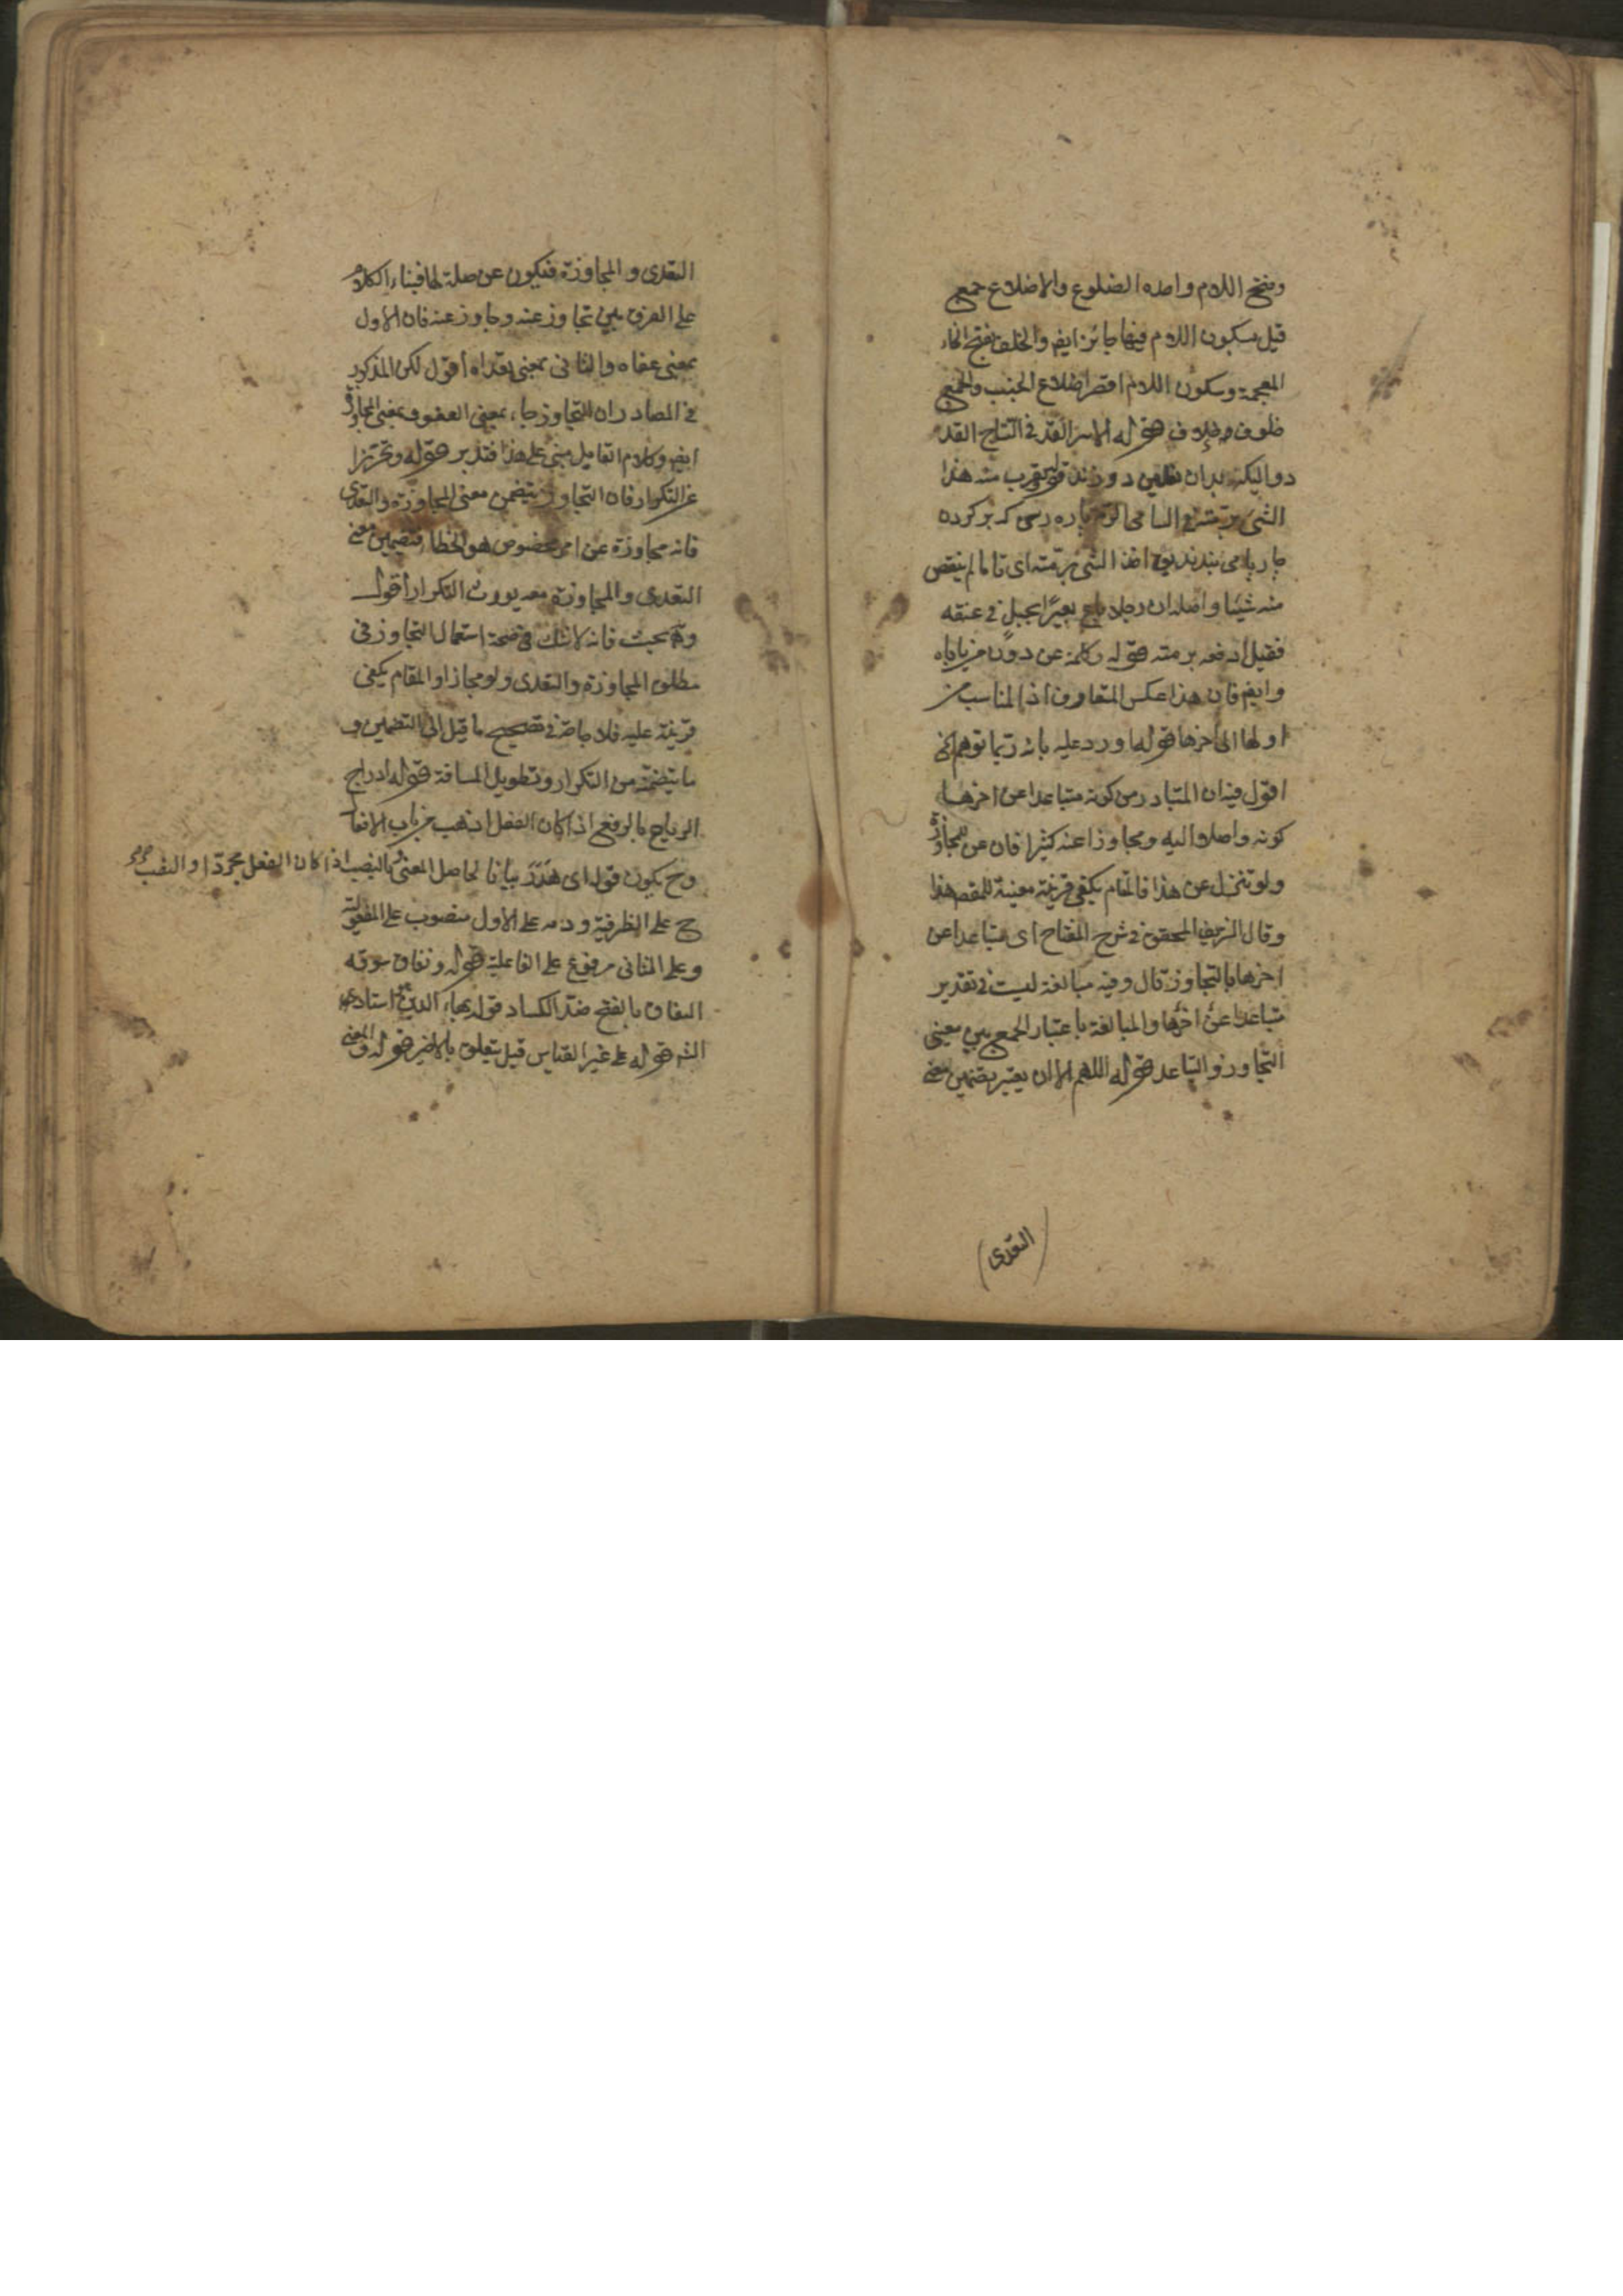 وفتح اللام واحده الضلوع والاضلاع جمع
قيل بسكون اللام فيها جائز ايضا والخلف بفتح الخاء
المعجمة وسكون اللام اقصر اضلاع الجنب والجمع
خلوف قوله الاسر القد في التاج القد
دوال منه هذا
الشئ برمته في السامى الرمة پاره رسن كه بر كرده
چارپا مى بندند يق اخذ الشئ برمته اى تاما لم ينقص
منه شيئا واصله ان رجلا باع بعيرا بحبل في عنقه
فقيل ادفعه برمته قوله وكلمة عن دون من ياباه
وايضا فان هذا عكس المتعارف اذ المناسب من
اولها الى آخرها قوله اورد عليه بانه ربما توهم الخ
اقول فيه ان المتبادر من كونه متباعدا عن اخرها
كونه واصلا اليه ومجاوزا عنه كثيرا فان عن للمجاوزة
ولو تنزل عن هذا فالمقام يكفى قرينة معينة للمقصد هذا
وقال الشريف المحقق في شرح المفتاح اى متباعدا عن
اخرها بالتجاوز قال وفيه مبالغة ليست في تقدير
متباعدا عن اخرها والمبالغة باعتبار الجمع بين معنى
التجاوز والتباعد قوله اللهم الا ان يعتبر تضمين معنى
(التعدى)
التعدى والمجاوزة فتكون عن صلة لها فبناء الكلام
على الفرق بين تجاوز عنه وجاوز عنه فان الاول
بمعنى عفاه والثانى بمعنى تعداه اقول لكن المذكور
في المصادر ان التجاوز جاء بمعنى العفو وبمعنى المجاوزة
ايضا وكلام القايل مبنى على هذا فتدبر قوله وتحرزا
عن التكرار فان التجاوز يتضمن معنى المجاوزة والتعدى
فانه مجاوزة عن امر مخصوص هو الخطا فتضمين معنى
التعدى والمجاوزة معه يورث التكرار اقول
وفيه بحث فانه لا شك في صحة استعمال التجاوز في
مطلق المجاوزة والتعدى ولو مجازا والمقام يكفى
قرينة عليه فلا حاجة في تصحيح ما قيل الى التضمين و
ما يتضمنه من التكرار وتطويل المسافة قوله ادراج
الرياح بالرفع اذا كان الفعل اذهب من باب الافعال
وح يكون قوله اى هدر بيانا لحاصل المعنى وبالنصب اذا كان الفعل مجردا والنصب
ح على الظرفية ودمه على الاول منصوب على المفعولية
وعلى الثانى مرفوع على الفاعلية قوله ونفاق سوقه
النفاق بالفتح ضد الكساد قوله بهاء الدين استاد
الش قوله على غير القياس قيل يتعلق بالاخير قوله والمعنى